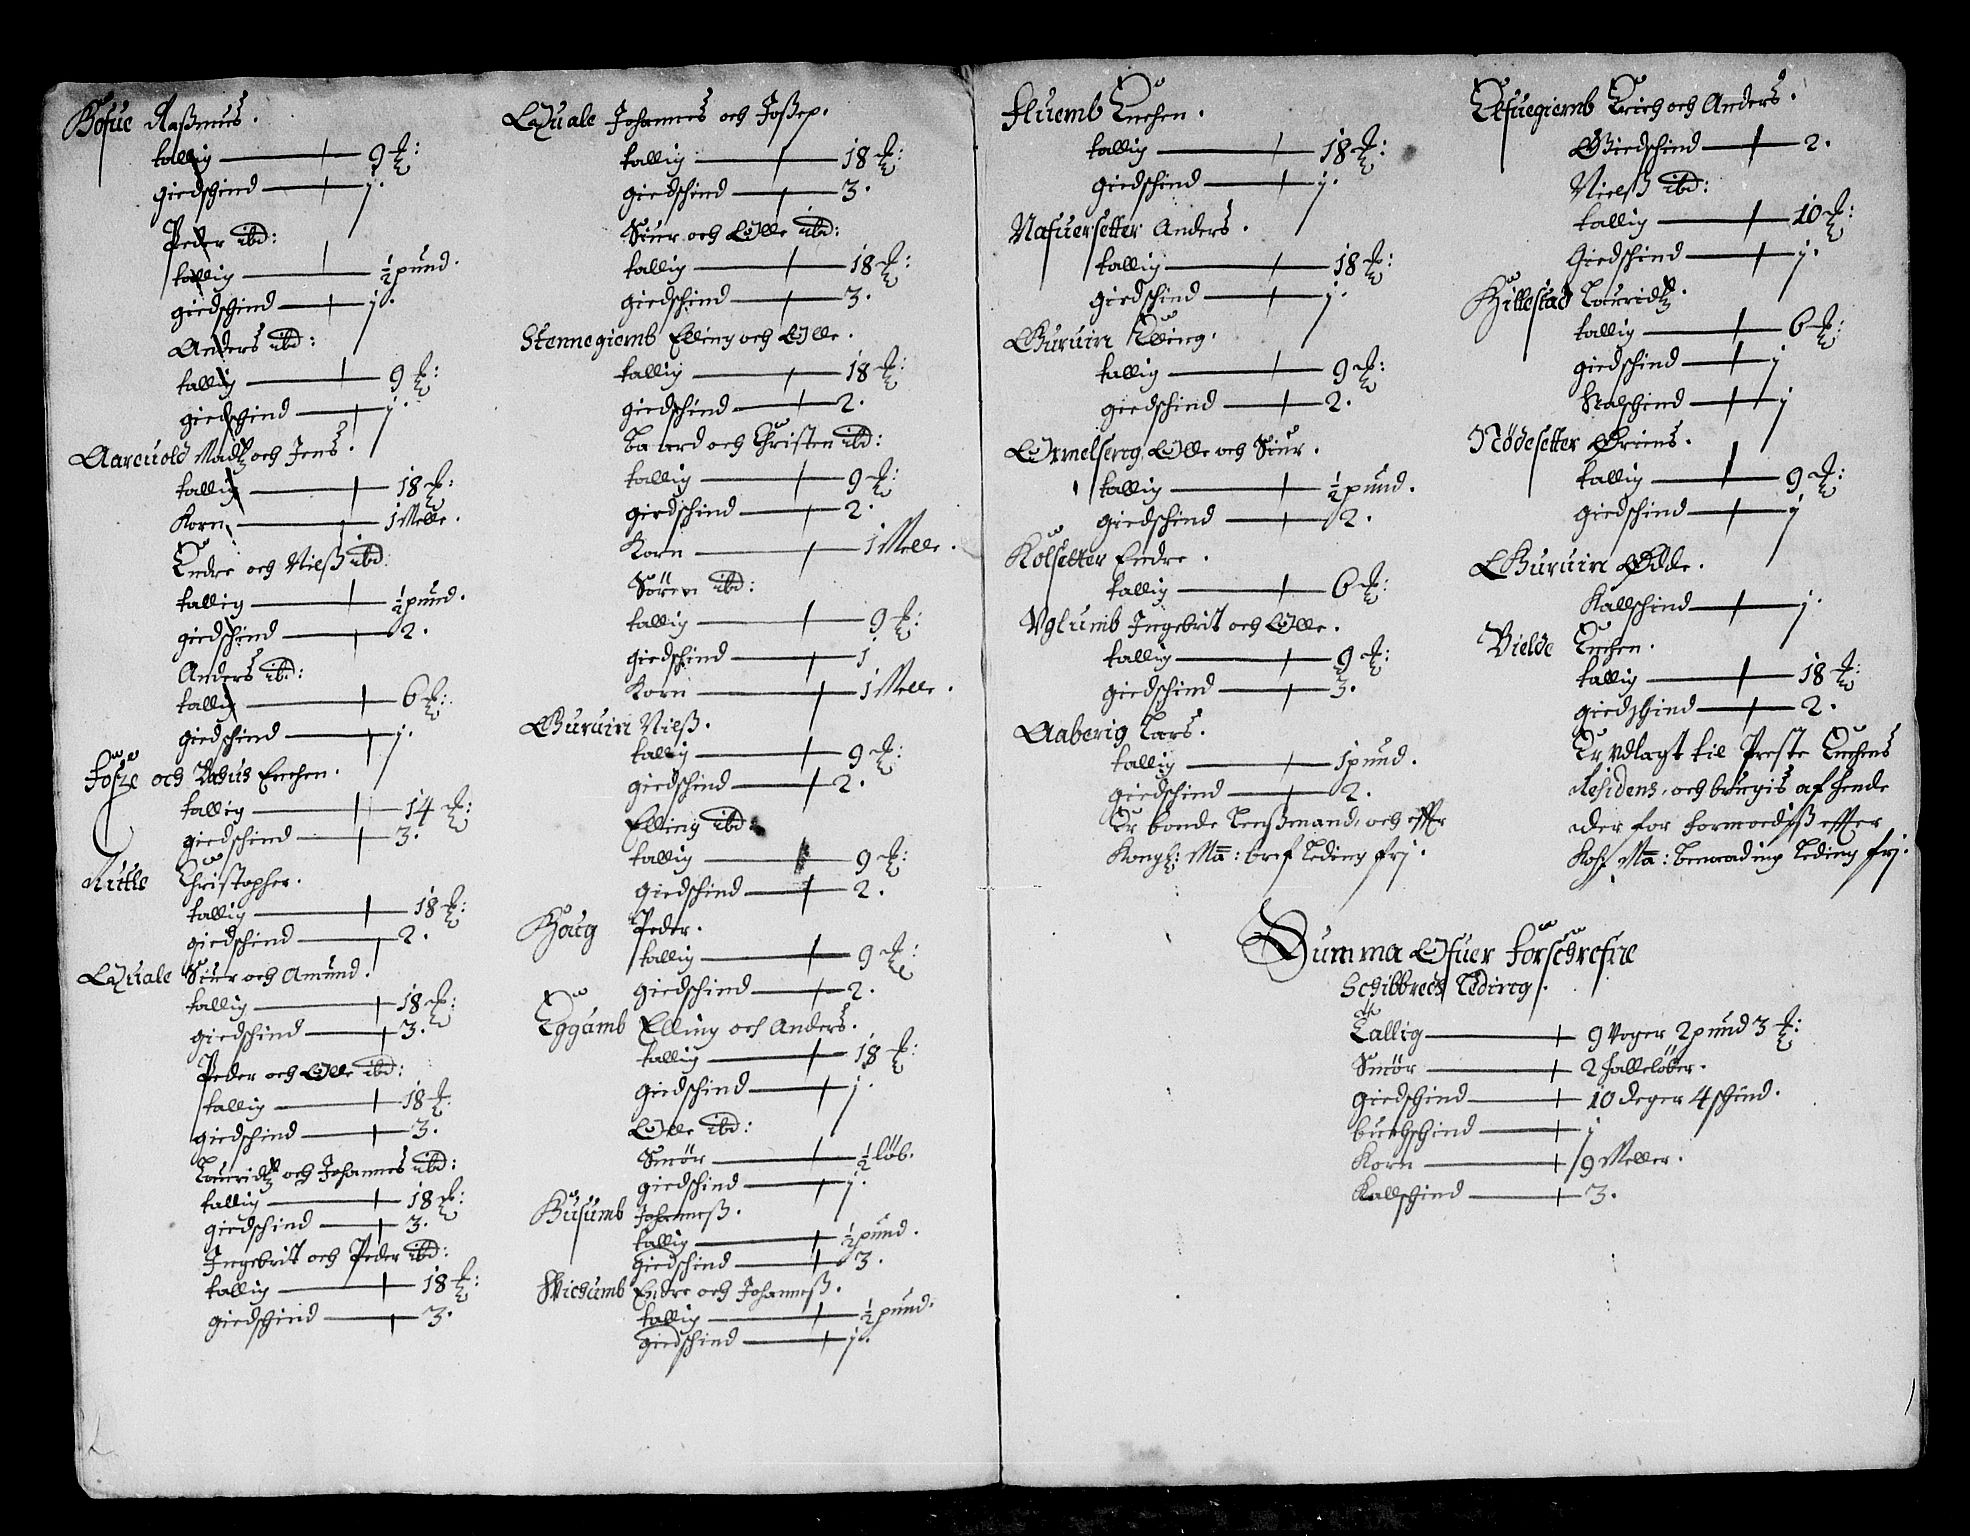 Bøfue Rasmus.
tallig 9 ℔:
giedschind j.
Peder ibd:
tallig ½ pund.
giedschind j.
Anders ibd:
tallig 9 ℔:
giedschind j.
Aareuold Madtz och Jens.
tallig 18 ℔:
Korn 1 Melle.
Endre och Nilß ibd
tallig ½ pund.
giedschind 2.
Anders ibd:
tallig 6 ℔:
giedschind j.
och Enchen.
tallig 14 ℔:
giedschind 3.
Rutle Christopher.
tallig 18 ℔:
giedschind 2.
Quale Siur och Amund.
tallig 18 ℔:
giedschind 3.
Peder och Olle ibd:
tallig 18 ℔:
giedschind 3.
Louridtz och Johannes ibd:
tallig 18 ℔:
giedschind 3.
Ingebrit och Peder ibd:
tallig 18 ℔:
giedschind 3.
Quale Johannes och Joßep.
tallig 18 ℔:
giedschind 3.
Siur och Olle ibd:
tallig 18 ℔:
giedschind 3.
Stennegiemb Elling och Olle.
tallig 18 ℔:
giedschind 2.
Baard och Christen ibd:
tallig 9 ℔:
giedschind 2.
Korn 1 Melle.
Søren ibd:
tallig 9 ℔:
giedschind 1
Korn 1 Melle.
Buruin Nilß.
tallig 9 ℔:
giedschind 2.
Elling ibd:
tallig 9 ℔:
giedschind 2.
Houg Peder.
tallig 9 ℔:
giedschind 2.
Eggumb Elling och Anders.
tallig 18 ℔:
giedschind j.
Olle ibd:
Smør ½ løb.
giedschind j.
Husumb Johanneß.
tallig ½ pund.
giedschind 3.
Wichumb Endre och Johanneß.
tallig ½ pund.
giedschind j.
Fluemb Enchen.
tallig 18 ℔:
giedschind j.
Nafuersetter Anders.
tallig 18 ℔:
giedschind j.
Buruin Elling.
tallig 9 ℔:
giedschind 2.
Ormelserog Olle och Siur.
tallig ½ pund.
giedschind 2.
Kolsetter Endre.
tallig 6 ℔:
Vglumb Ingebrit och Olle.
tallig 9 ℔:
giedschind 3.
Aaberig Lars.
tallig 1 pund.
giedschind 2.
Er bonde Lensmand, och effter
Kongl: Ma: bref Leding frj.
Efuegiemb Erich och Anders.
Giedschind 2.
Nielß ibd:
tallig 10 ℔:
Giedschind j.
Hillestad Louridtz.
tallig 6 ℔:
giedschind j
Kalschind j
Nødesetter Øriens.
tallig 9 ℔:
giedschind j
Buruin Odde.
Kallschind j.
Vielde Enchen.
tallig 18 ℔:
giedschind 2.
Er Vdlagt til Preste Enchens
Residens, och brugis af hende
der for formodeß effter
Koh: Ma: benaading Leding frj.
Summa Ofuer forschrefne
Schibbrede Leding.
Tallig 9 Voger 2 pund 3 ℔:
Smør 2 halleløber.
giedschind 10 deger 4 schind.
buchschind j
Korn 9 Meller.
Kallschind 3.